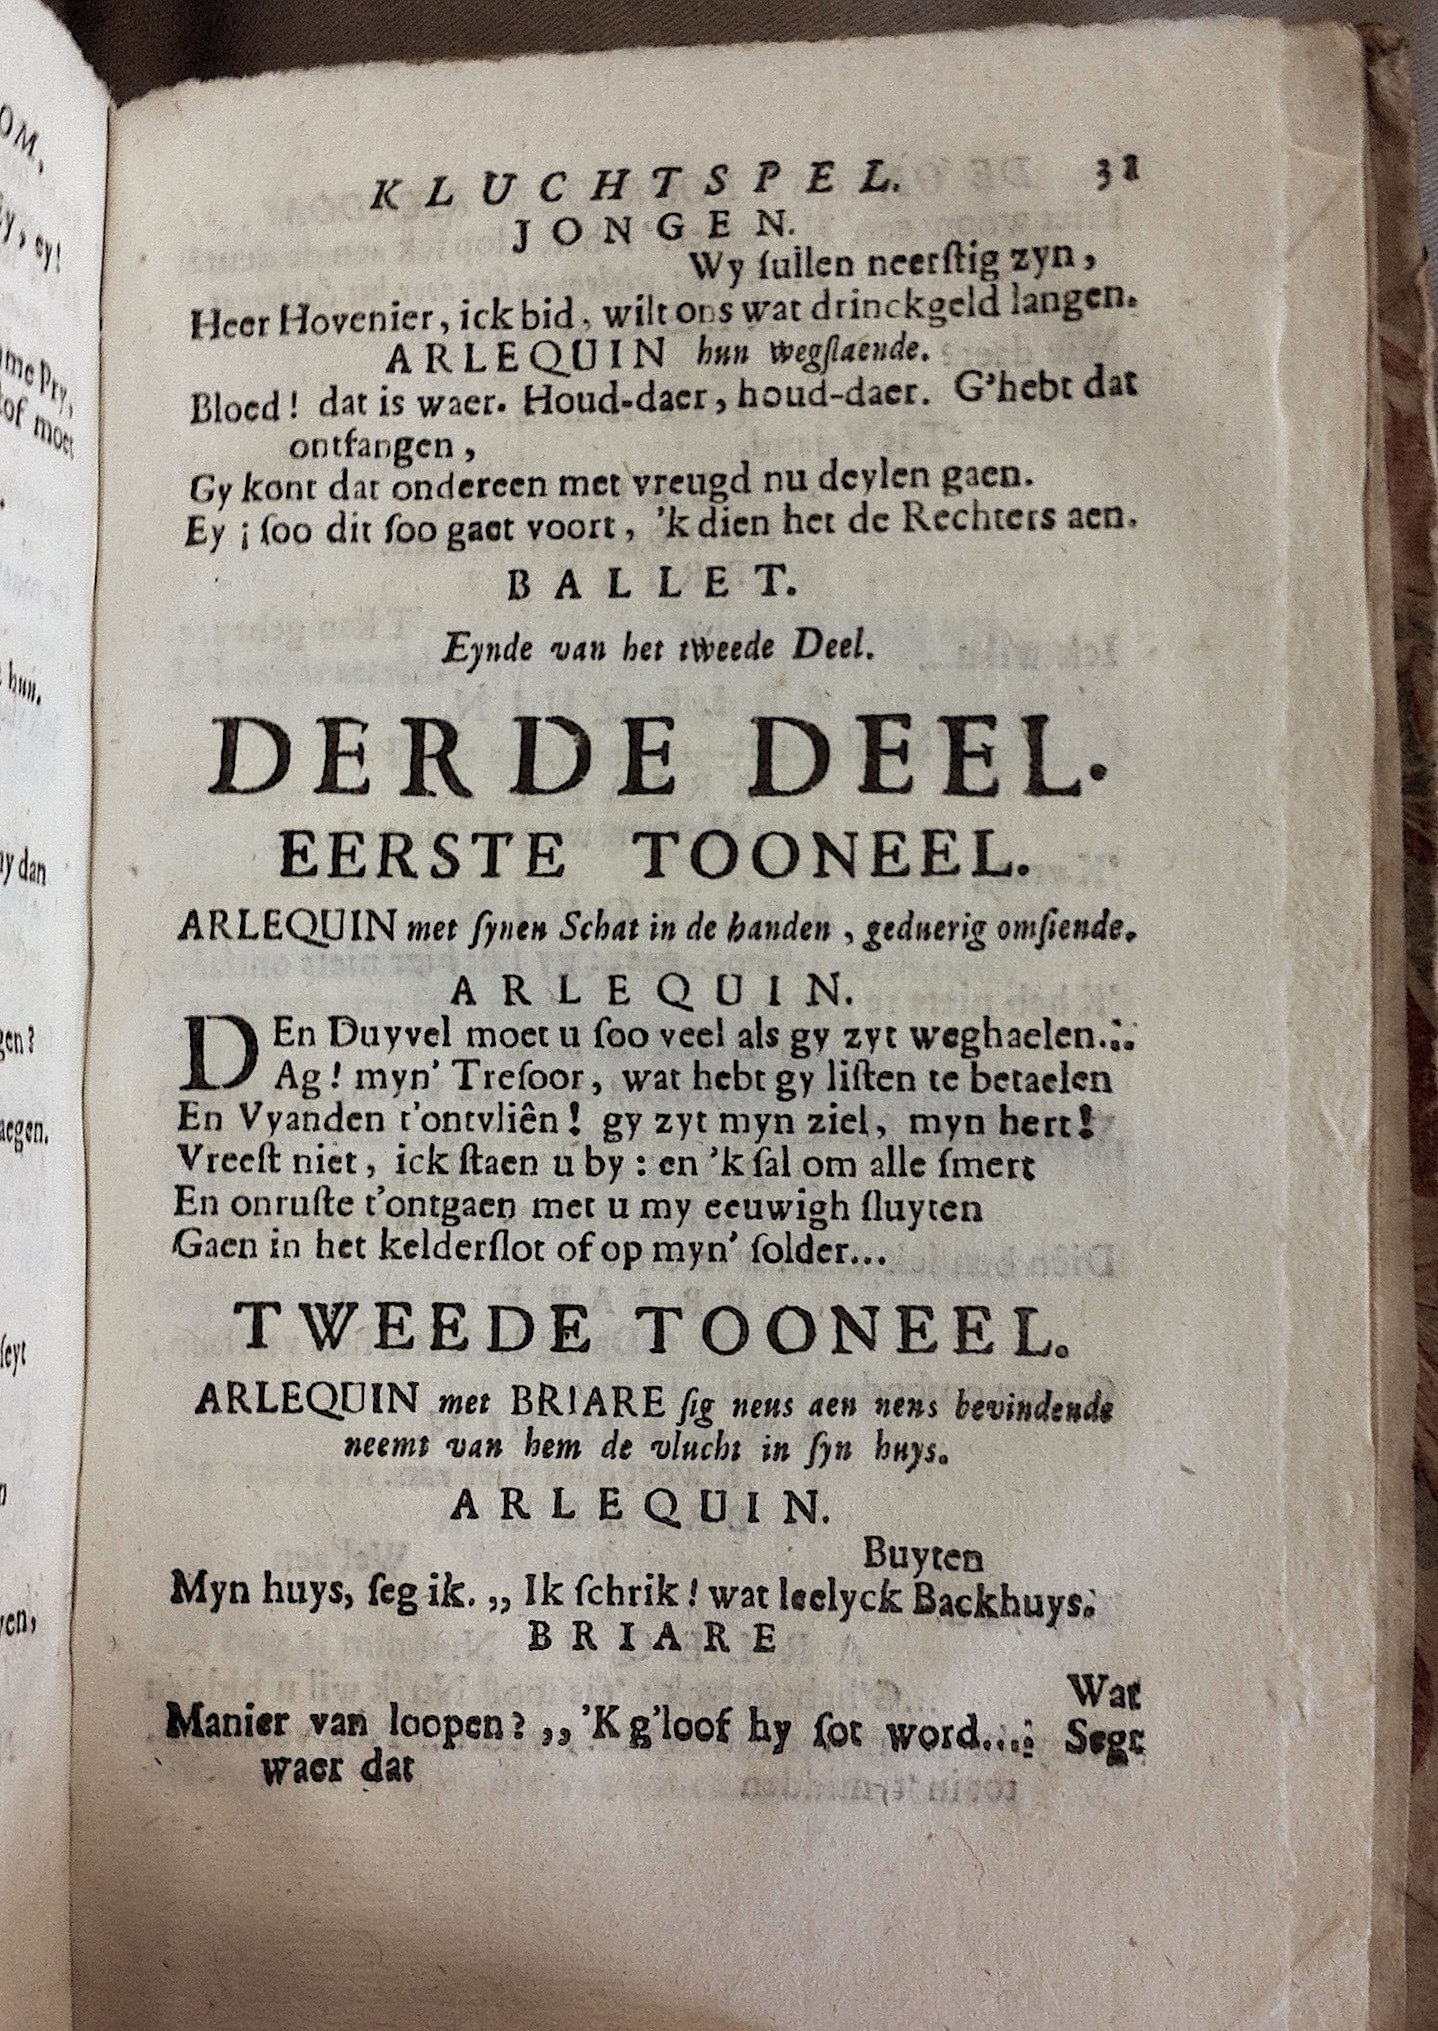 KLUCHTSPEL. 31
JONGEN.
Wy ſullen neerſtig zyn,
Heer Hovenier, ick bid, wilt ons wat drinckgeld langen.
ARLEQUIN hun wegſlaende.
Bloed! dat is waer. Houd-daer, houd-daer. G'hebt dat
ontfangen,
Gy kont dat ondereen met vreugd nu deylen gaen.
Ey ¡ ſoo dit ſoo gaet voort, 'k dien het de Rechters aen.
BALLET.
Eynde van het tweede Deel.
DERDE DEEL.
EERSTE TOONEEL.
ARLEQUIN met ſynen Schat in de handen, geduerig omſiende.
ARLEQUIN.
DEn Duyvel moet u ſoo veel als gy zyt weghaelen.:.
Ag! myn' Treſoor, wat hebt gy liſten te betaelen
En Vyanden t'ontvliên! gy zyt myn ziel, myn hert!
Vreeſt niet, ick ſtaen u by: en 'k ſal om alle ſmert
En onruſte t'ontgaen met u my eeuwigh ſluyten
Gaen in het kelderſlot of op myn' ſolder...
TWEEDE TOONEEL.
ARLEQUIN met BRIARE ſig neus aen neus bevindende
neemt van hem de vlucht in ſyn huys.
ARLEQUIN.
Buyten
Myn huys, ſeg ik. ,, Ik ſchrik! wat leelyck Backhuys.
BRIARE
Wat
Manier van loopen? ,, 'K g'loof hy ſot word.... Segt
waer dat
OM,
ey!
me Pry,
of moet
hun.
y dan
gen?
aegen.
ſeyt